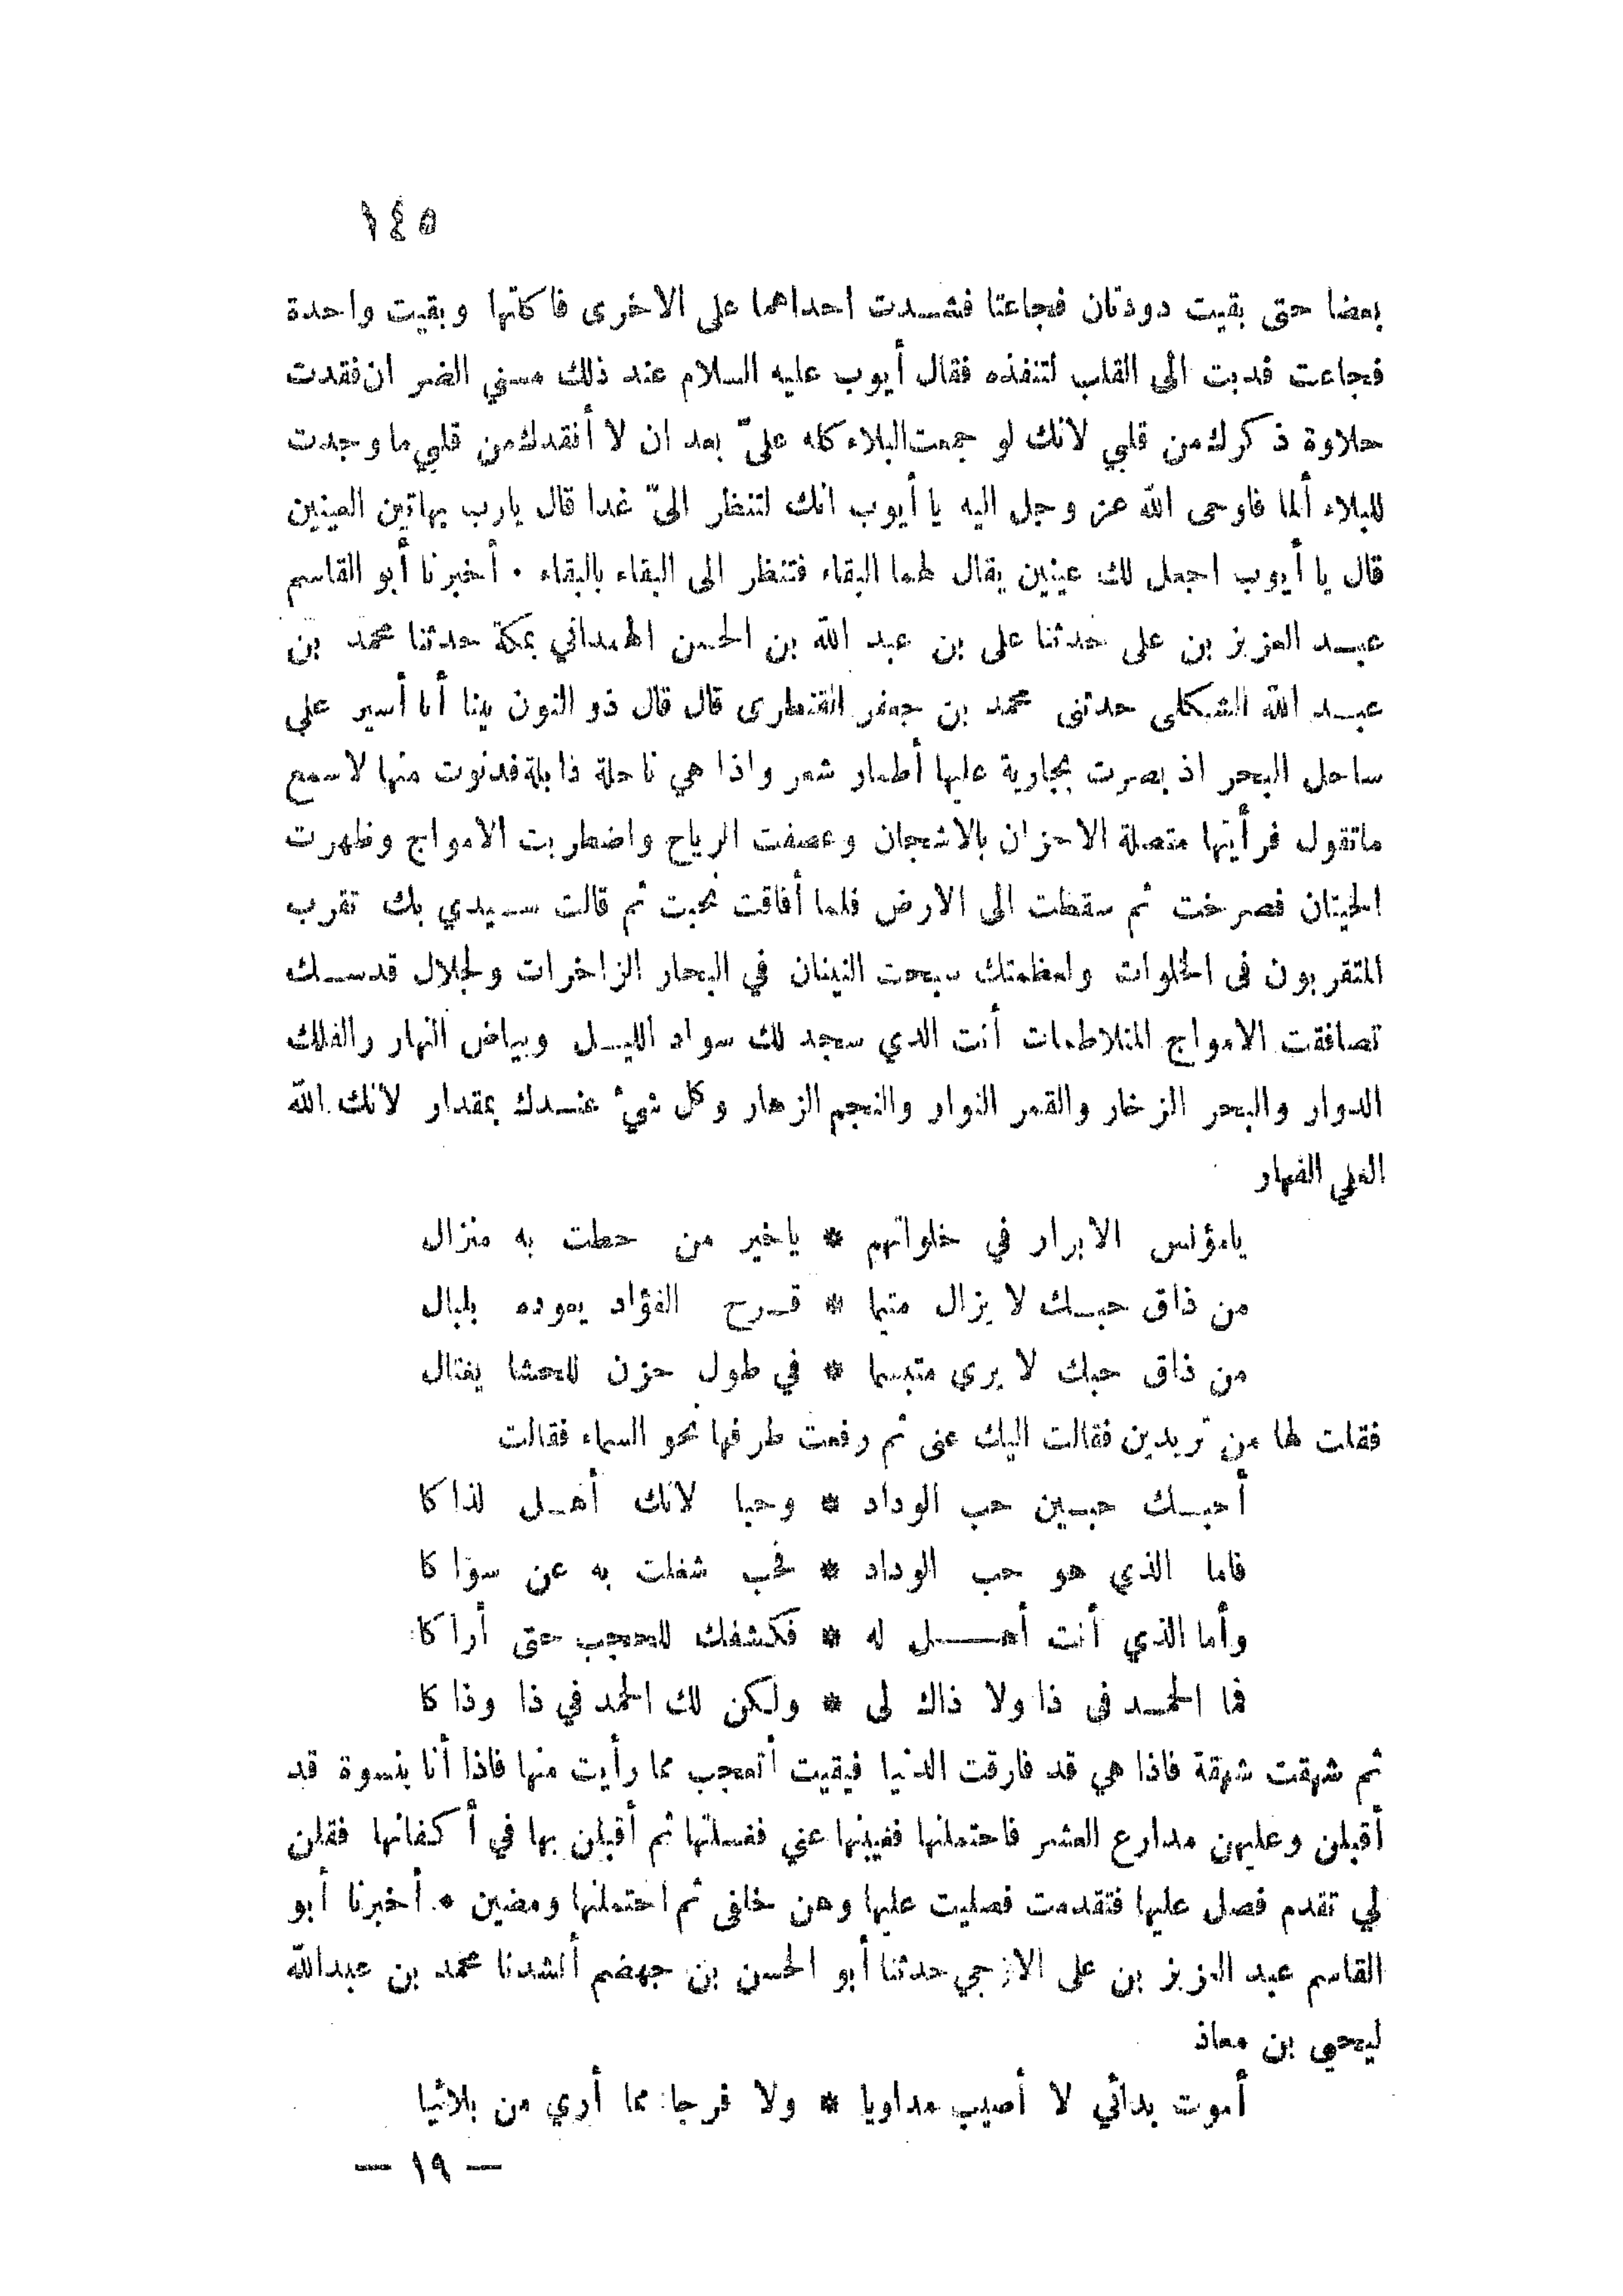 ١٤٥
بعضا حتى بقيت دودتان فجاعتا فشدت احداهما على الاخرى فاكلتها وبقيت واحدة
فجاعت فدبت الى القلب لتنفذه فقال أيوب عليه السلام عند ذلك مسني الضر ان فقدت
حلاوة ذكرك من قلبي لانك لو جمعت البلاء كله علىّ بعد ان لا أفقدك من قلبي ما وجدت
للبلاء ألما فاوحى الله عز وجل اليه يا أيوب انك لتنظر الىّ غدا قال يارب بهاتين العينين
قال يا أيوب اجعل لك عينين يقال لهما البقاء فتنظر الى البقاء بالبقاء • أخبرنا أبو القاسم
عبد العزيز بن على حدثنا على بن عبد الله بن الحسن الهمداني بمكة حدثنا محمد بن
عبد الله الشكلى حدثنى محمد بن جعفر القنطرى قال قال ذو النون بينا أنا أسير على
ساحل البحر اذ بصرت بجارية عليها أطمار شعر واذا هي ناحلة ذابلة فدنوت منها لاسمع
ماتقول فرأيتها متصلة الاحزان بالاشجان وعصفت الرياح واضطربت الامواج وظهرت
الحيتان فصرخت ثم سقطت الى الارض فلما أفاقت نحبت ثم قالت سيدي بك تقرب
المتقربون فى الخلوات ولعظمتك سبحت النينان في البحار الزاخرات ولجلال قدسك
تصافقت الامواج المتلاطمات أنت الذي سجد لك سواد الليل وبياض النهار والفلك
الدوار والبحر الزخار والقمر النوار والنجم الزهار وكل شيء عندك بمقدار لانك الله
العلي القهار
يامؤنس الابرار في خلواتهم * ياخير من حطت به منزال
من ذاق حبك لا يزال متيما * قرح الفؤاد يعوده بلبال
من ذاق حبك لا يرى متبسما * في طول حزن للحشا يغتال
فقلت لها من تريدين فقالت اليك عنى ثم رفعت طرفها نحو السماء فقالت
أحبك حبين حب الوداد * وحبا لانك أهل لذاكا
فاما الذي هو حب الوداد * فحب شغلت به عن سواكا
وأما الذي أنت أهل له * فكشفك للحجب حتى أراكا
فما الحمد فى ذا ولا ذاك لى * ولكن لك الحمد في ذا وذاكا
ثم شهقت شهقة فاذا هي قد فارقت الدنيا فبقيت أتعجب مما رأيت منها فاذا أنا بنسوة قد
أقبلن وعليهن مدارع الشعر فاحتملنها فغيبنها عني فغسلنها ثم أقبلن بها في أكفانها فقلن
لي تقدم فصل عليها فتقدمت فصليت عليها وهن خلفى ثم احتملنها ومضين • أخبرنا أبو
القاسم عبد العزيز بن على الازجي حدثنا أبو الحسن بن جهضم أنشدنا محمد بن عبدالله
ليحيى بن معاذ
أموت بدائي لا أصيب مداويا * ولا فرجا مما أرى من بلائيا
— ١٩ —